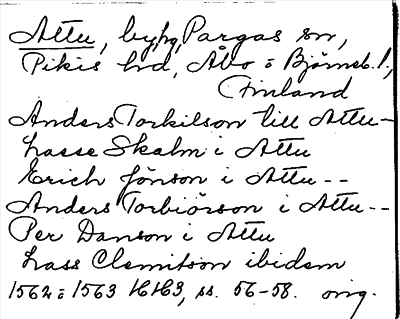 Attu, by, Pargas sn,
Pikis hd, Åbo o Björneb. l.,
Finland
Anders Torkilson till Attu -
Lasse Skalm i Attu
Erich Jönson i Attu --
Anders Torbiörson i Attu --
Per Danson i Attu
Lass Clemitson ibidem
1562 o 1563 ss. 56-58. orig.